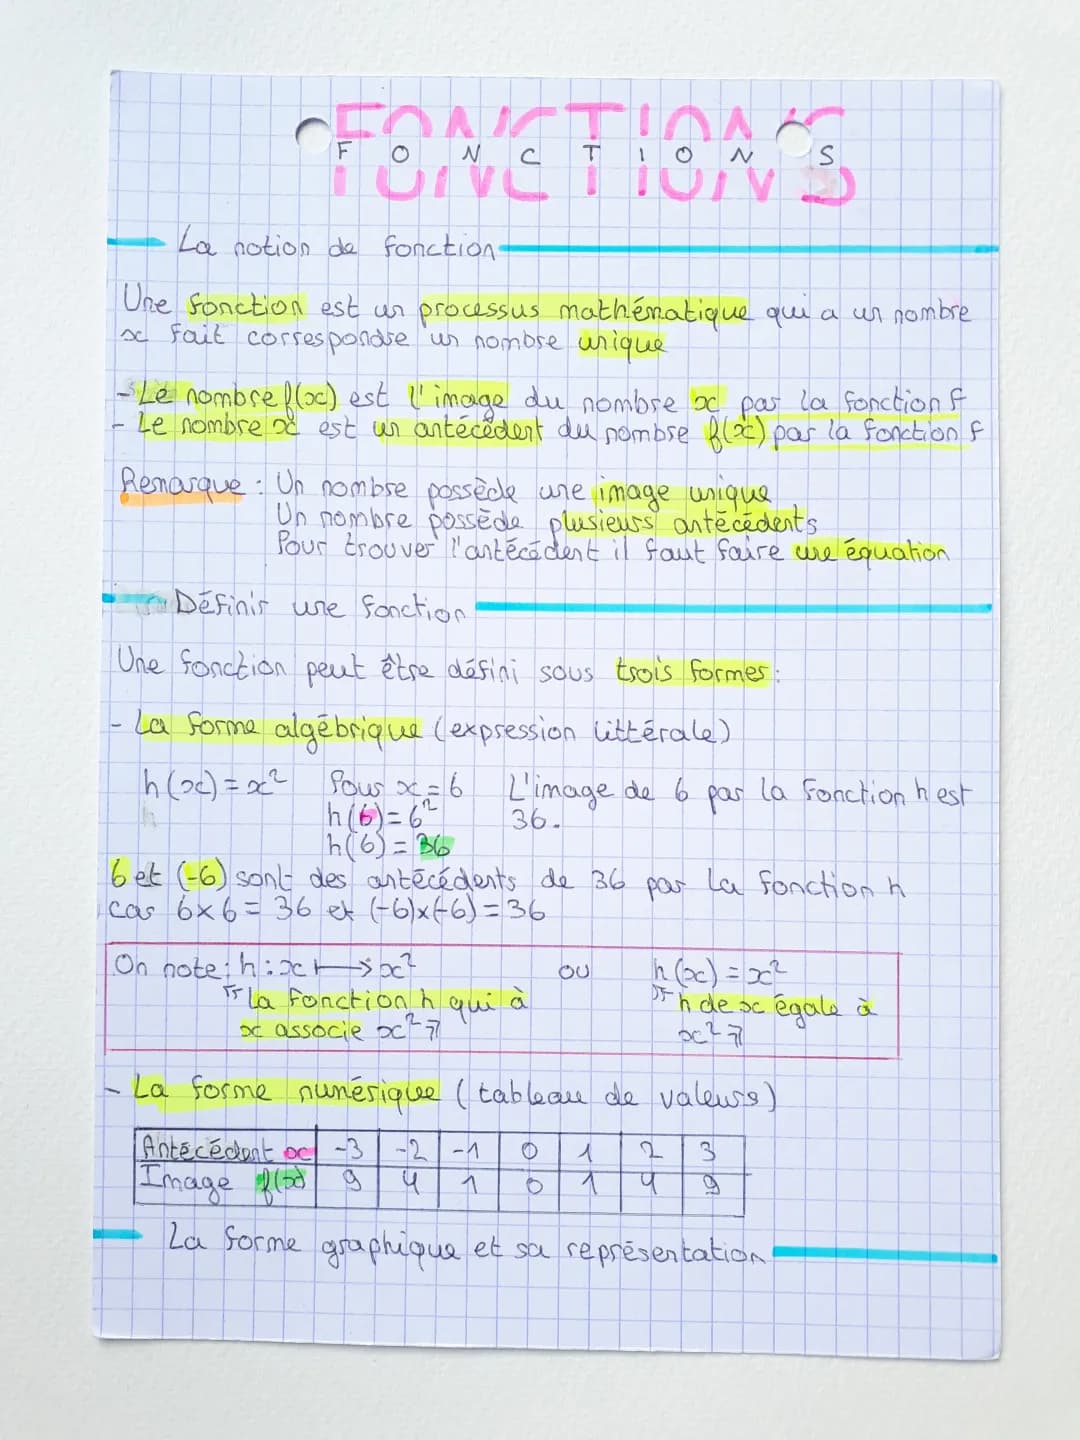 FONCTIONS
F O N C T I O N S
La notion de fonction
Une fonction est un processus mathématique qui a un nombre
x fait correspondre un nombre unique
- Le nombre f(x) est l'image du nombre x par la fonction f
- Le nombre x est un antécédent du nombre f(x) par la fonction f
Remarque : Un nombre possède une image unique
Un nombre possède plusieurs antécédents
Pour trouver l'antécédent il faut faire une équation
Définir une fonction
Une fonction peut être défini sous trois formes :
- La forme algébrique (expression littérale)
h(x) = x² Pour x = 6 L'image de 6 par la fonction h est
h(6) = 6² 36.
h(6) = 36
6 et (-6) sont des antécédents de 36 par la fonction h
car 6×6 = 36 et (-6)×(-6) = 36
On note : h : x ⟼ x² ou h(x) = x²
"La fonction h qui à "h de x égale à
x associe x²" x²"
- La forme numérique (tableau de valeurs)
Antécédent x -3 -2 -1 0 1 2 3
Image f(x) 9 4 1 0 1 4 9
La forme graphique et sa représentation